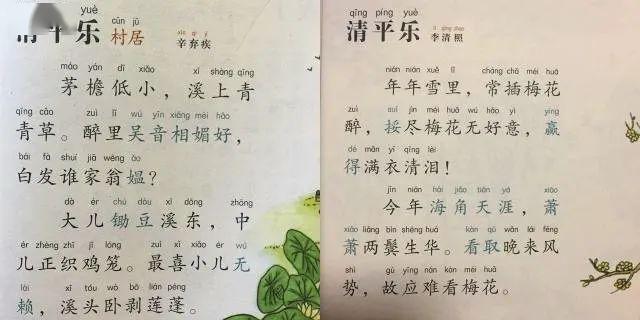 yuè
清平乐
cūn jū
村居
xīn qì jí
辛弃疾
máo yán dī xiǎo xī shàng qīng
茅檐低小，溪上青
qīng cǎo zuì lǐ wú yīn xiāng mèi hǎo
青草。醉里吴音相媚好，
bái fà shuí jiā wēng ǎo
白发谁家翁媪？
dà ér chú dòu xī dōng zhōng
大儿锄豆溪东，中
ér zhèng zhī jī lóng zuì xǐ xiǎo ér wú
儿正织鸡笼。最喜小儿无
lài xī tóu wò bāo lián peng
赖，溪头卧剥莲蓬。
qīng píng yuè
清平乐
lǐ qīng zhào
李清照
nián nián xuě lǐ cháng chā méi huā
年年雪里，常插梅花
zuì suí jìn méi huā wú hǎo yì yíng
醉，挼尽梅花无好意，赢
dé mǎn yī qīng lèi
得满衣清泪！
jīn nián hǎi jiǎo tiān yá xiāo
今年海角天涯，萧
xiāo liǎng bìn shēng huá kàn qǔ wǎn lái fēng
萧两鬓生华。看取晚来风
shì gù yīng nán kàn méi huā
势，故应难看梅花。